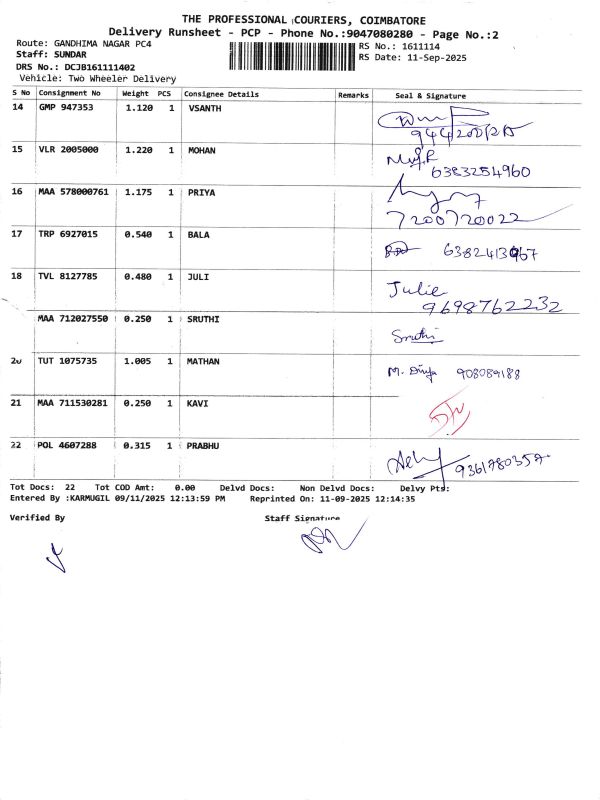 THE PROFESSIONAL COURIERS, COIMBATORE
Delivery Runsheet - PCP - Phone No.:9047080280 - Page No.:2
Route: GANDHIMA NAGAR PC4
RS No.: 1611114
Staff: SUNDAR
RS Date: 11-Sep-2025
DRS No.: DCJB161111402
Vehicle: Two Wheeler Delivery
S No Consignment No Weight PCS Consignee Details Remarks Seal & Signature
14 GMP 947353 1.120 1 VSANTH
15 VLR 2005000 1.220 1 MOHAN
6383254960
16 MAA 578000761 1.175 1 PRIYA
7200720022
17 TRP 6927015 0.540 1 BALA 6382413067
18 TVL 8127785 0.480 1 JULI
Julie
9698762232
MAA 712027550 0.250 1 SRUTHI
Sruthi
20 TUT 1075735 1.005 1 MATHAN
M. Divya 908089188
21 MAA 711530281 0.250 1 KAVI
22 POL 4607288 0.315 1 PRABHU
9361780357
Tot Docs: 22 Tot COD Amt: 0.00 Delvd Docs: Non Delvd Docs: Delvy Pts:
Entered By :KARMUGIL 09/11/2025 12:13:59 PM Reprinted On: 11-09-2025 12:14:35
Verified By Staff Signature